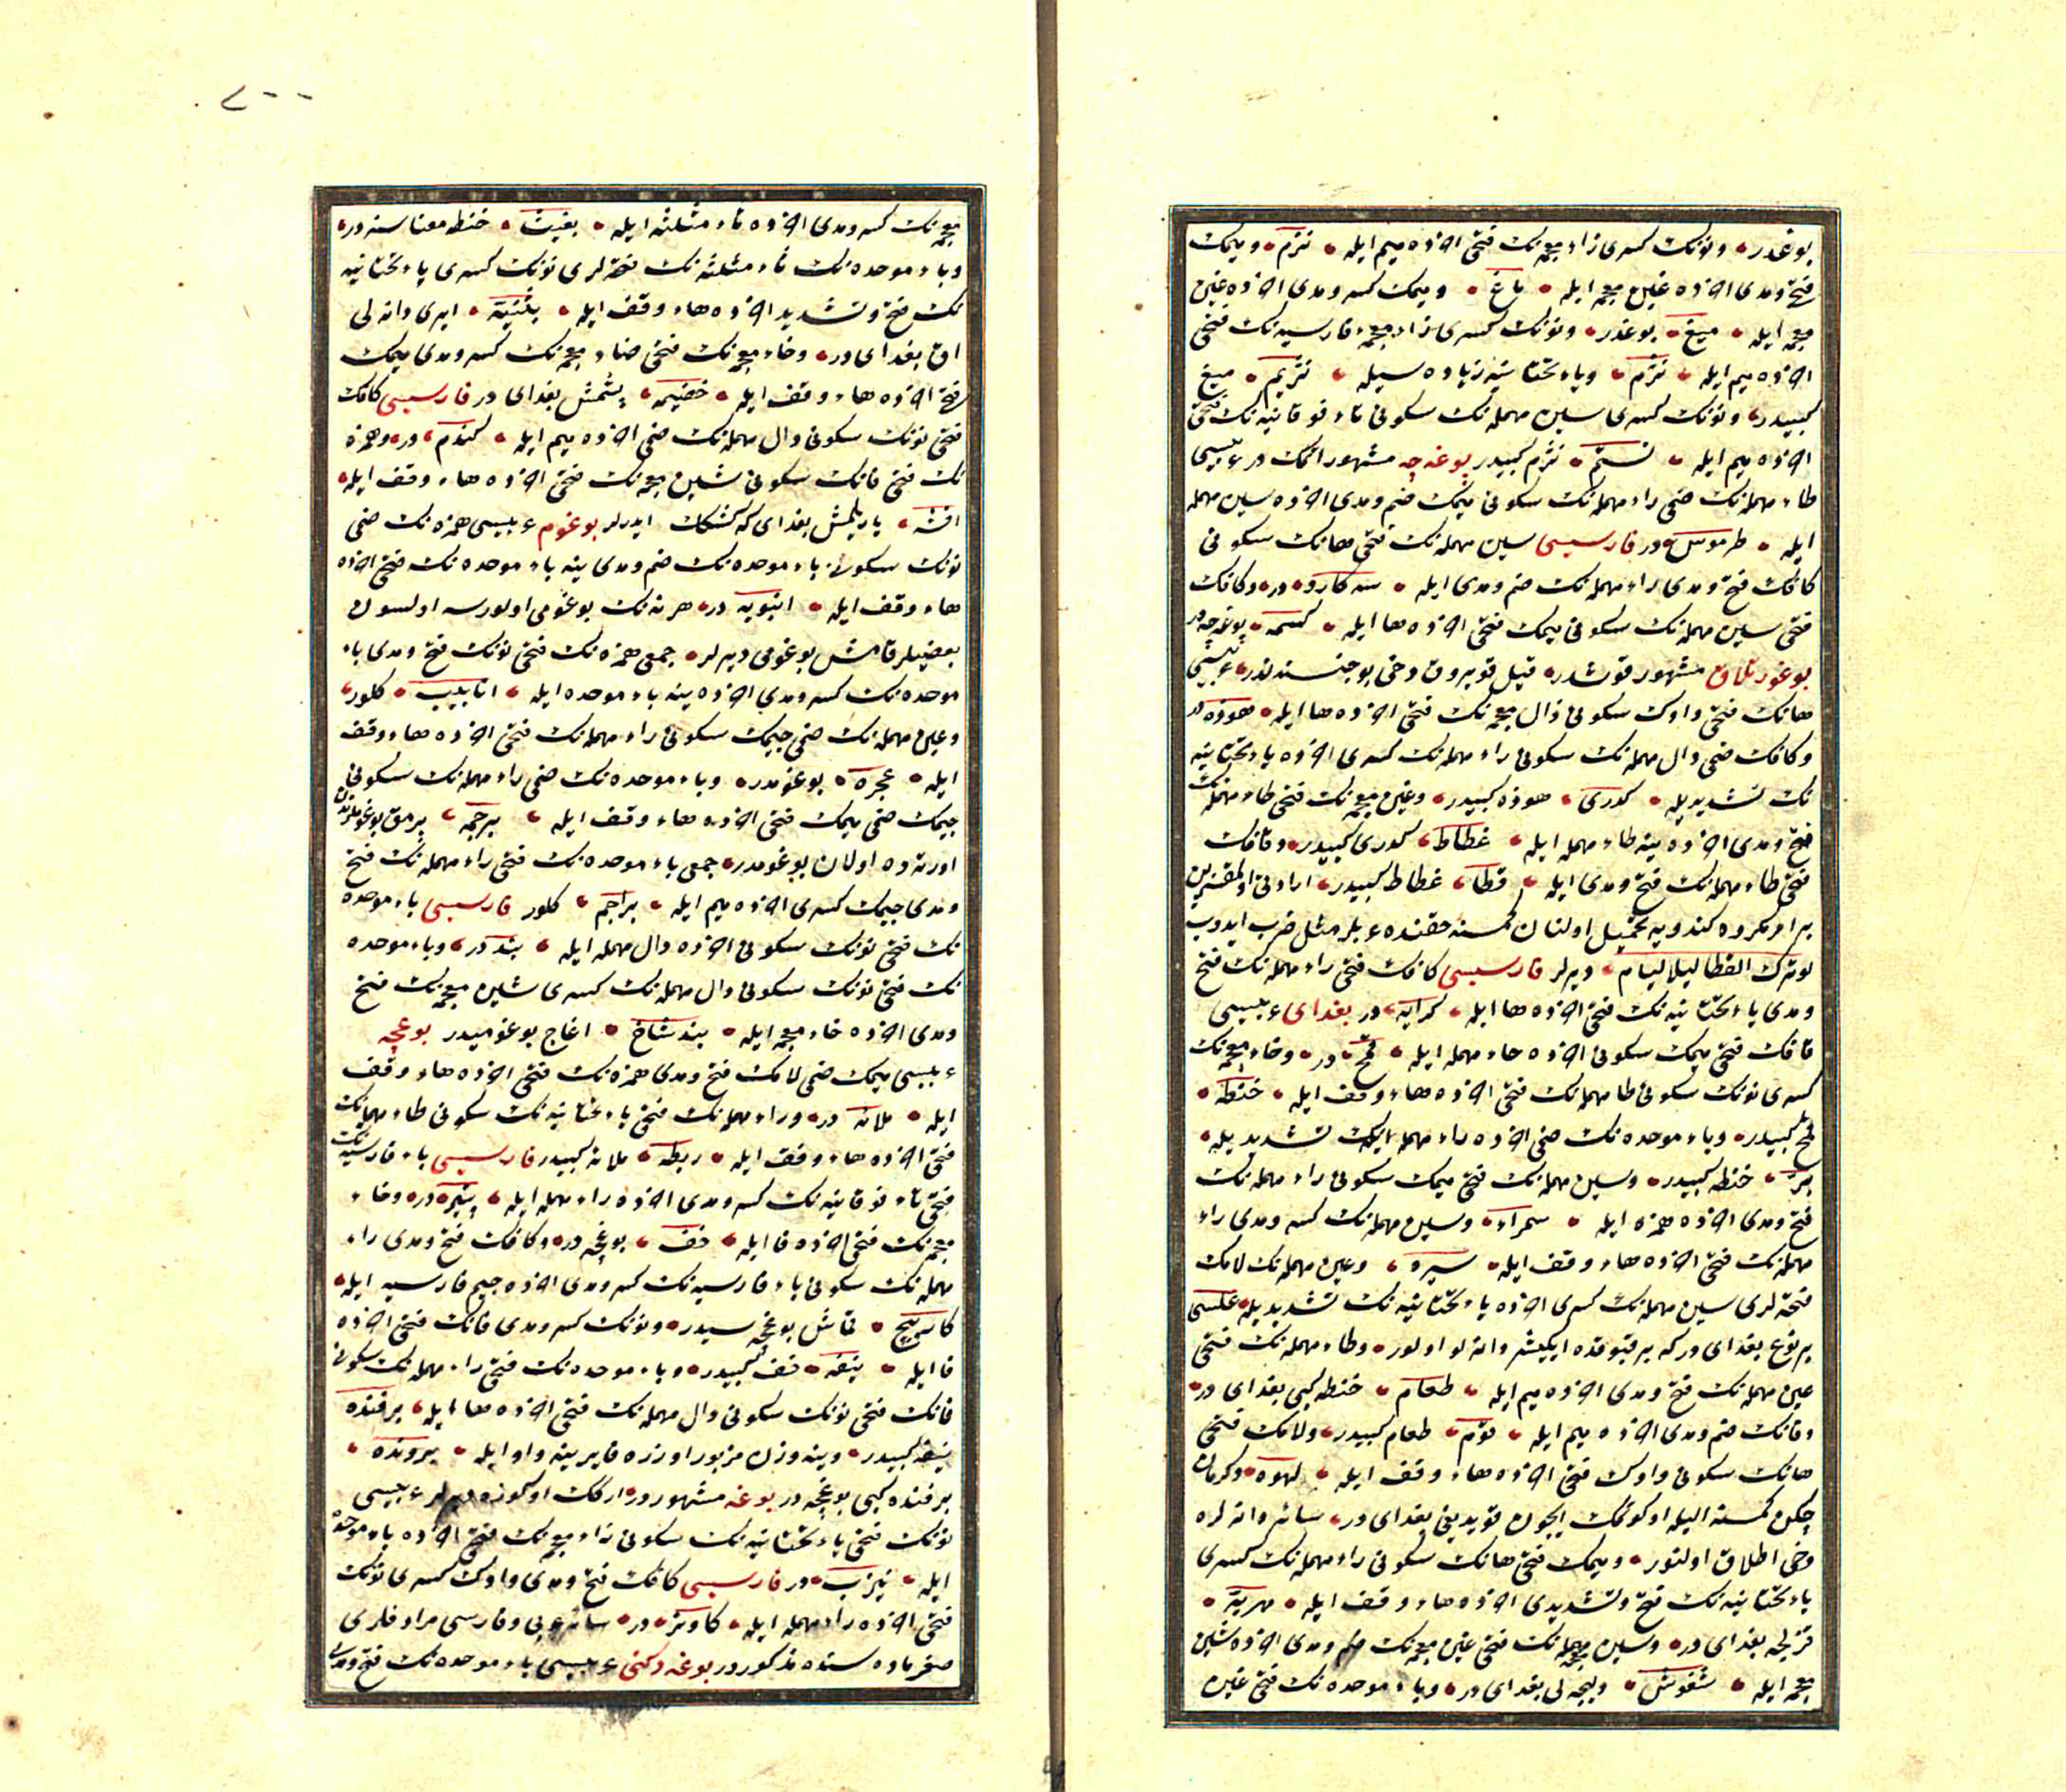 بوغدر ونونك كسری زاء معجمه‌نك فتحی آخرنده میم ایله نزم ومیمك
فتح ومدی آخرنده غین معجمه ایله ماغ ومیمك كسر ومدی آخرنده غین
معجمه ایله میغ بوغدر ونونك كسری زاء معجمهٔ فارسیه‌نك فتحی
آخرنده میم ایله نژم ویاء تحتانیه زیاده‌سیله نژیم میغ
كبیدر ونونك كسری سین مهمله‌نك سكونی تاء فوقانیه‌نك فتحی
آخرنده میم ایله نستم نژم كبیدر بوغه‌چه مشهور اتمك در عربیسی
طاء مهمله‌نك ضمی راء مهمله‌نك سكونی میمك ضم ومدی آخرنده سین مهمله
ایله طرموس در فارسیسی سین مهمله‌نك فتحی هانك سكونی
كافك فتح ومدی راء مهمله‌نك ضم ومدی ایله سه كارو در وكافك
فتحی سین مهمله‌نك سكونی میمك فتحی آخرنده ها ایله كسمه بوغه‌چه در
بوغورتلاق مشهور قوشدر قیل قویروق دخی بو جنسندندر عربیسی
هانك فتحی واوك سكونی ذال معجمه‌نك فتحی آخرنده ها ایله هوذه در
وكافك ضمی دال مهمله‌نك سكونی راء مهمله‌نك كسری آخرنده یاء تحتانیه
نك تشدیدیله كدری هوذه كبیدر وغین معجمه‌نك فتحی طاء مهمله‌نك
فتح ومدی آخرنده ینه طاء مهمله ایله غطاط كدری كبیدر وقافك
فتحی طاء مهمله‌نك فتح ومدی ایله قطا غطاط كبیدر
بر امر مكروه كندویه تحمیل اولنان كمسنه حقنده عربلر مثل ضرب ایدوب
لو ترك القطا لیلا لنام دیرلر فارسیسی كافك فتحی راء مهمله‌نك فتح
ومدی یاء تحتانیه‌نك فتحی آخرنده ها ایله كرایه در بغدای عربیسی
قافك فتحی میمك سكونی آخرنده حاء مهمله ایله قمح در وحاء مهمله‌نك
كسری نونك سكونی طا مهمله‌نك فتحی آخرنده هاء وقف ایله حنطه
قمح كبیدر وباء موحده‌نك ضمی آخرنده راء مهمله‌نك تشدیدیله
بر حنطه كبیدر وسین مهمله‌نك فتحی میمك سكونی راء مهمله‌نك
فتح ومدی آخرنده همزه ایله سمراء وسین مهمله‌نك كسر ومدی راء
مهمله‌نك فتحی آخرنده هاء وقف ایله سیره وعین مهمله‌نك لامك
فتحه‌لری سین مهمله‌نك كسری آخرنده یاء تحتانیه‌نك تشدیدیله علسی
بر نوع بغدای در كه بر قبوقده ایكیشر دانه‌لو اولور وطاء مهمله‌نك فتحی
عین مهمله‌نك فتح ومدی آخرنده میم ایله طعام حنطه كبی بغدای در
وفانك ضم ومدی آخرنده میم ایله فوم طعام كبیدر ولامك فتحی
هانك سكونی واوك فتحی آخرنده هاء وقف ایله لهوه دكرمان
چكن كمسنه الیله اوكوتمك ایچون قویدیغی بغدای در سائر دانه‌لره
دخی اطلاق اولنور ومیمك فتحی هانك سكونی راء مهمله‌نك كسری
یاء تحتانیه‌نك فتح وتشدیدی آخرنده هاء وقف ایله مهریه
قزلجه بغدای در وشین معجمه‌نك فتحی غین معجمه‌نك ضم ومدی آخرنده شین
معجمه ایله شغوش دلیجه‌لی بغدای در وباء موحده‌نك فتحی غین
معجمه‌نك كسر ومدی آخرنده ثاء مثلثه ایله بغیث حنطه معناسنه در
وباء موحده‌نك ثاء مثلثه‌نك فتحه‌لری نونك كسری یاء تحتانیه
نك فتح وتشدید آخرنده هاء وقف ایله بثنیه ایری دانه‌لی
اق بغدای در وخاء معجمه‌نك فتحی ضاد معجمه‌نك كسر ومدی میمك
فتح آخرنده هاء وقف ایله خضیمه پشمش بغدای در فارسیسی كافك
فتحی نونك سكونی دال مهمله‌نك ضمی آخرنده میم ایله كندم در وهمزه
نك فتحی فانك سكونی شین معجمه‌نك فتحی آخرنده هاء وقف ایله
افشه یارلمش بغدای كه كشكك ایدرلر بوغوم عربیسی همزه‌نك ضمی
نونك سكونی باء موحده‌نك ضم ومدی ینه باء موحده‌نك فتحی آخرنده
هاء وقف ایله انبوبه در هر نه‌نك بوغومی اولورسه اولسون
بعضیلر قامش بوغومی دیرلر جمعی همزه‌نك فتحی نونك فتح ومدی باء
موحده‌نك كسر ومدی آخرنده ینه باء موحده ایله انابیب كلور
وعین مهمله‌نك ضمی جیمك سكونی راء مهمله‌نك فتحی آخرنده هاء وقف
ایله عجره بوغومدر وباء موحده‌نك ضمی راء مهمله‌نك سكونی
جیمك ضمی میمك فتحی آخرنده هاء وقف ایله برجمه پرمق بوغوملرندن
اورتده اولان بوغومدر جمعی باء موحده‌نك فتحی راء مهمله‌نك فتح
ومدی جیمك كسری آخرنده میم ایله براجم كلور فارسیسی باء موحده
نك فتحی نونك سكونی آخرنده دال مهمله ایله بند در وباء موحده
نك فتحی نونك سكونی دال مهمله‌نك كسری شین معجمه‌نك فتح
ومدی آخرنده خاء معجمه ایله بند شاخ اغاج بوغومیدر بوغچه
عربیسی میمك ضمی لامك فتح ومدی همزه‌نك فتحی آخرنده هاء وقف
ایله ملائه در وراء مهمله‌نك فتحی یاء تحتانیه‌نك سكونی طاء مهمله‌نك
فتحی آخرنده هاء وقف ایله ریطه ملائه كبیدر فارسیسی باء فارسیه‌نك
فتحی تاء فوقانیه‌نك كسر ومدی آخرنده راء مهمله ایله در وخاء
معجمه‌نك فتحی آخرنده فا ایله خف بوغچه در وكافك فتح ومدی راء
مهمله‌نك سكونی باء فارسیه‌نك كسر ومدی آخرنده جیم فارسیه ایله
كارپیچ قماش بوغچه‌سیدر ونونك كسر ومدی فانك فتحی آخرنده
فا ایله نیفه خف كبیدر وباء موحده‌نك فتحی راء مهمله‌نك سكونی
فانك فتحی نونك سكونی دال مهمله‌نك فتحی آخرنده ها ایله برفنده
نیفه كبیدر وینه وزن مزبور اوزره فا یرینه واو ایله برونده
برفنده كبی بوغچه در بوغه مشهور در اركك اوكوزه دیرلر عربیسی
نونك فتحی یاء تحتانیه‌نك سكونی زاء معجمه‌نك فتحی آخرنده باء موحده
ایله نیزب در فارسیسی كافك فتح ومدی واوك كسری نونك
فتحی آخرنده راء مهمله ایله كاونر در سائر عربی وفارسی مرادفلری
صغر ماده‌سنده مذكوردر بوغه دكنی عربیسی باء موحده‌نك فتح ومدی